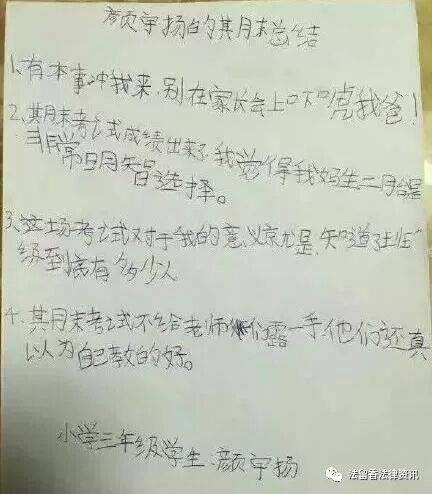 颜宇扬的其月末总结
1、有本事冲我来,别在家长会上口下口虎我爸!
2、其月末考试成绩出来了,我觉得我妈生二月台是
非常日月智选择。
3、这场考试对于我的意义京尤是,知道了班
级到底有多少人
4、其月末考试不给老师们露一手,他们还真
以为自己教的好。
小学三年级学生:颜宇扬
法留香法律资讯